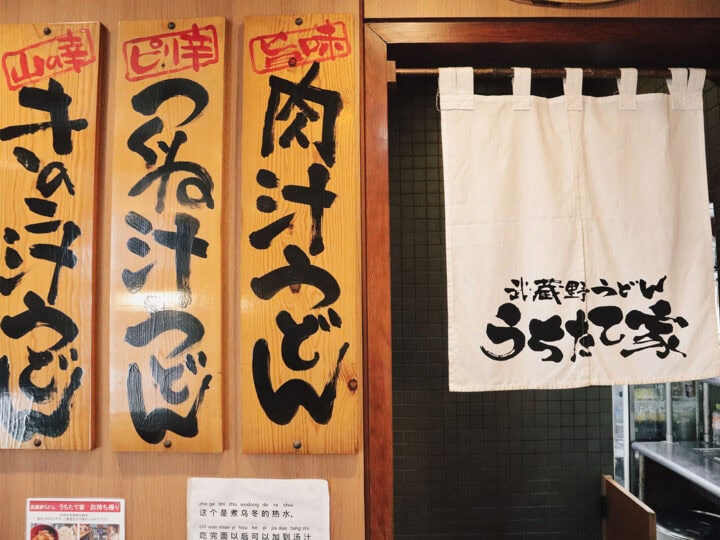 山の幸
きのこ汁うどん
ピリ辛
つくね汁うどん
旨味
肉汁うどん
武蔵野うどん
うちたて家
武蔵野うどん うちたて家 お持ち帰り
zhe ge shi zhu wudong de re shui
这个是煮乌冬的热水,
chi wan mian yi hou ke yi jia dao tang zhi
吃完面以后可以加到汤汁